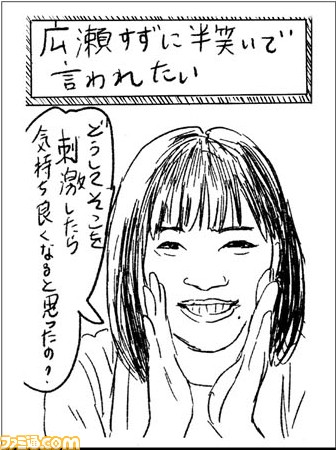 広瀬すずに半笑いで
言われたい
どうしてそこを
刺激したら
気持ち良くなると思ったの？
ファミ通.com